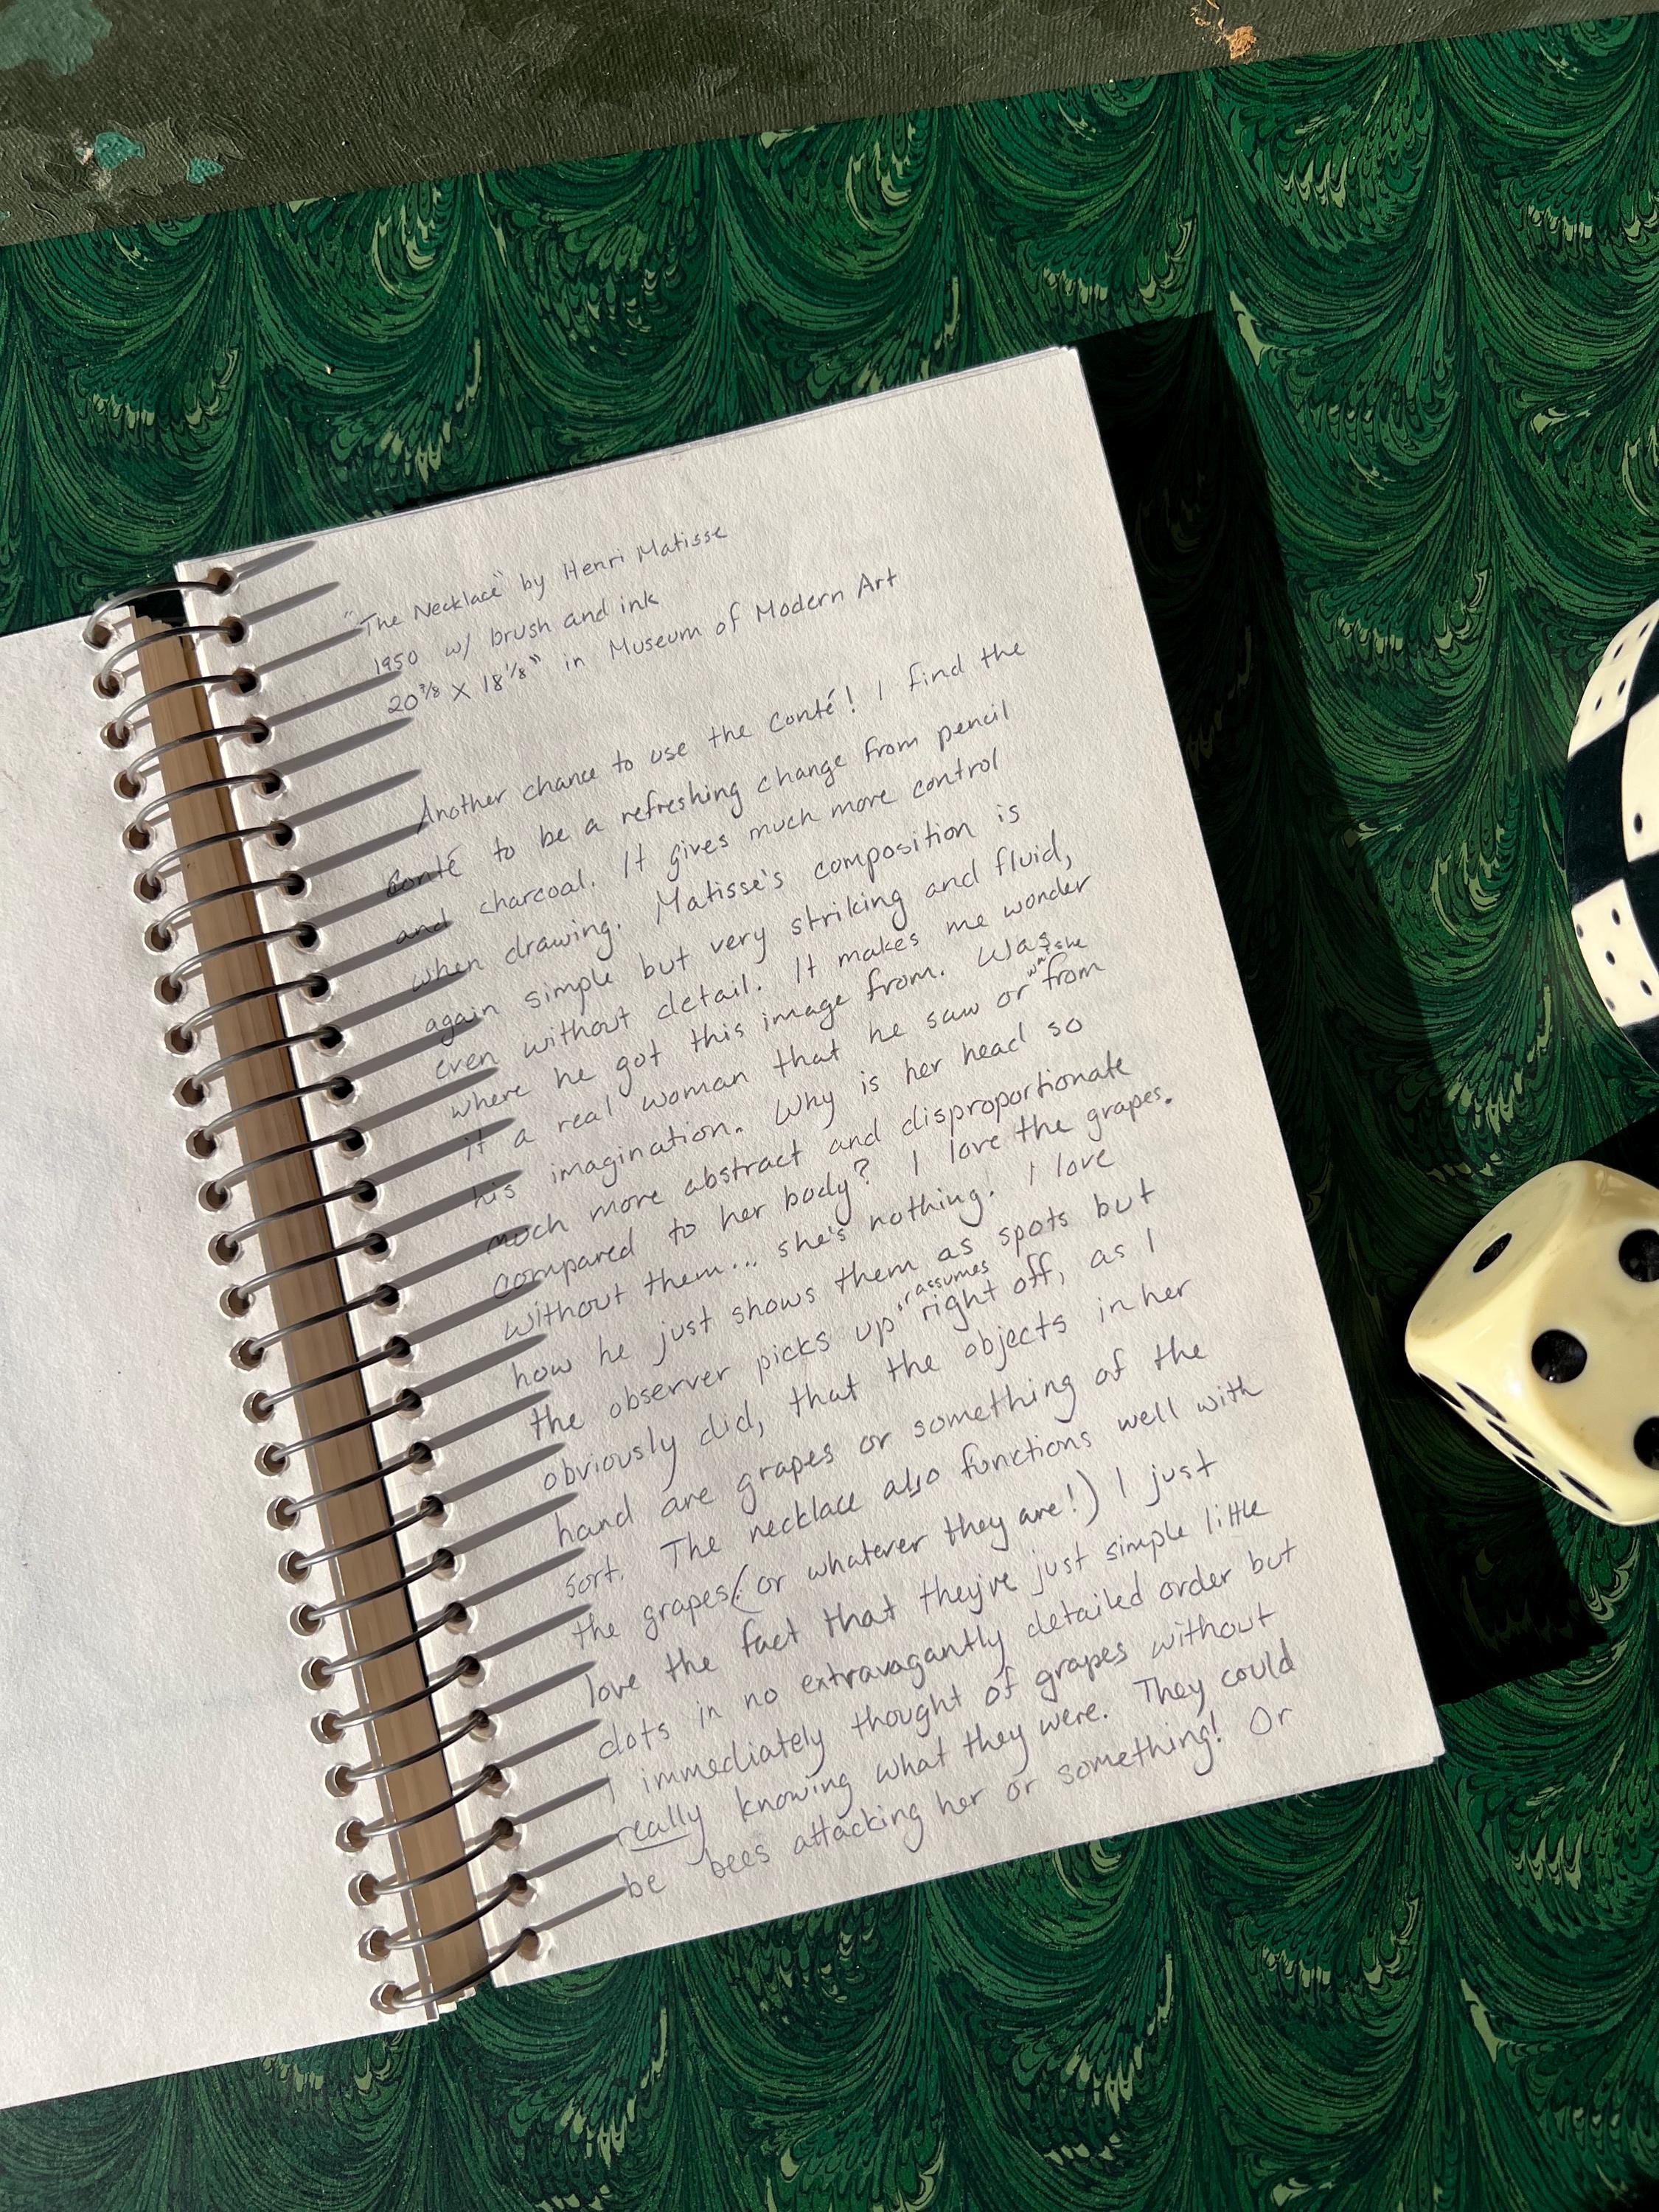 "The Necklace" by Henri Matisse
1950 w/ brush and ink
20 3/8 X 18 1/8" in Museum of Modern Art
Another chance to use the conté! I find the
Conté to be a refreshing change from pencil
and charcoal. It gives much more control
when drawing. Matisse's composition is
again simple but very striking and fluid,
even without detail. It makes me wonder
where he got this image from. Was
it a real woman that he saw or was she from
his imagination. Why is her head so
much more abstract and disproportionate
compared to her body? I love the grapes.
without them... she's nothing! I love
how he just shows them as spots but
the observer picks up "r assumes right off, as I
obviously did, that the objects in her
hand are grapes or something of the
sort. The necklace also functions well with
the grapes (or whatever they are!) I just
love the fact that they're just simple little
dots in no extravagantly detailed order but
I immediately thought of grapes without
really knowing what they were. They could
be bees attacking her or something! Or